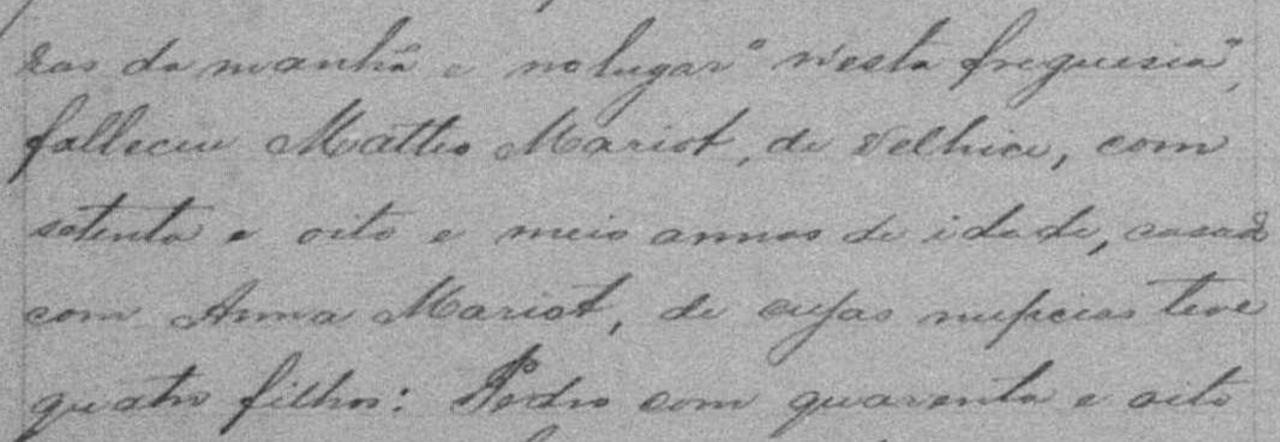 ras da manhã e no lugar "nesta freguesia",
falleceu Matteo Mariot, de velhice, com
setenta e oito e meio annos de idade, casado
com Anna Mariot, de cujas nupcias teve
quatro filhos: Pedro com quarenta e oito